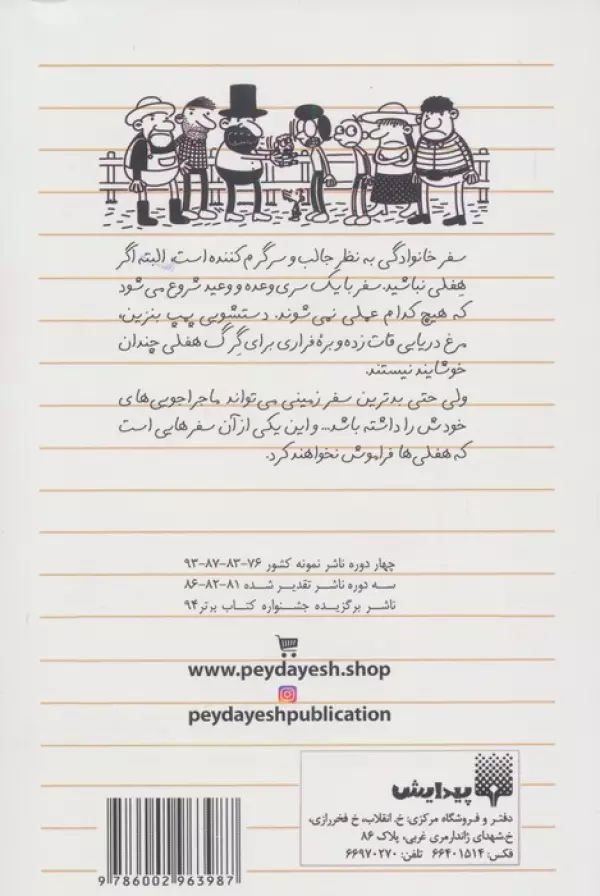 سفر خانوادگی به نظر جالب و سرگرم‌کننده است، البته اگر
هفلی نباشید. سفر با یک سری وعده و وعید شروع می‌شود
که هیچ کدام عملی نمی‌شوند. دستشویی پمپ بنزین،
مرغ دریایی قات زده و برهٔ فراری برای گرگ هفلی چندان
خوشایند نیستند.
ولی حتی بدترین سفر زمینی می‌تواند ماجراجویی‌های
خودش را داشته باشد... و این یکی از آن سفرهایی است
که هفلی‌ها فراموش نخواهند کرد.
چهار دوره ناشر نمونه کشور ۷۶-۸۳-۸۷-۹۳
سه دوره ناشر تقدیر شده ۸۱-۸۲-۸۶
ناشر برگزیده جشنواره کتاب برتر ۹۴
www.peydayesh.shop
peydayeshpublication
پیدایش
دفتر و فروشگاه مرکزی: خ. انقلاب، خ فخررازی،
خ.شهدای ژاندارمری غربی، پلاک ۸۶
فکس: ۶۶۴۰۱۵۱۴ تلفن: ۶۶۹۷۰۲۷۰
9 786002 963987